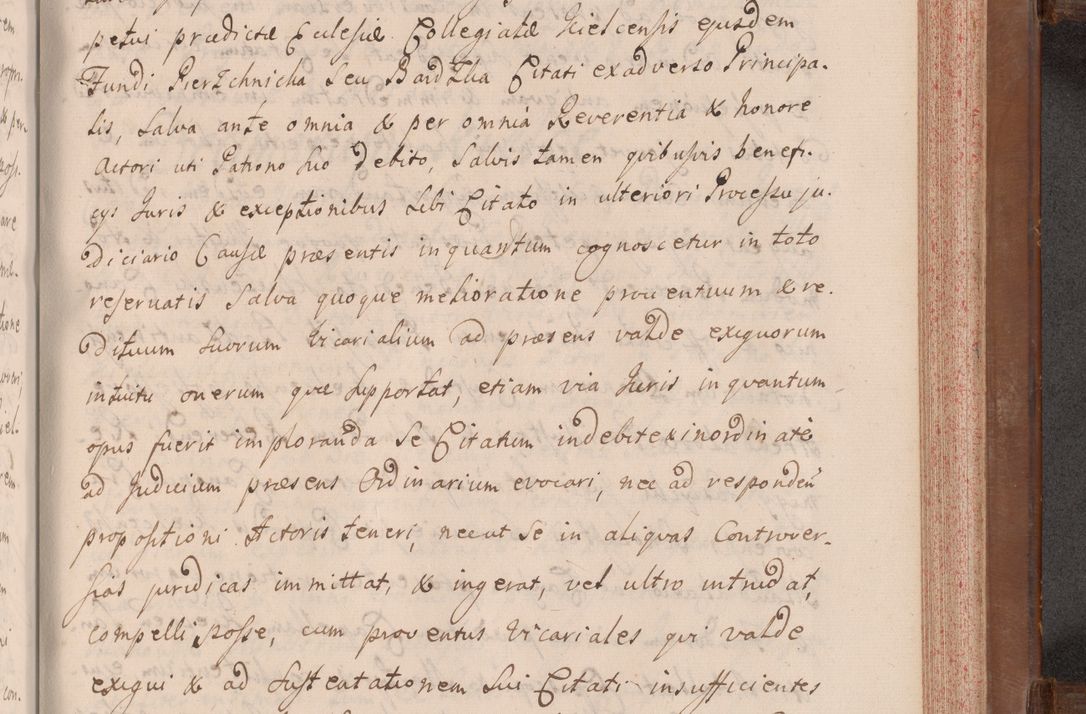 petui prædictæ Ecclesiæ Collegiatæ Kielcensis ejusdem
Fundi Pierzchnicka Seu Bardzka Citati exadverso Principa-
lis, Salva ante omnia & per omnia Reverentia & honore
Actori uti Patrono Suo debito, Salvis tamen quibusvis benefi-
cys Juris & exceptionibus Sibi Citato in ulteriori Processu ju-
diciario Causæ præsentis inquantum cognoscetur in toto
reservatis Salva quoque melioratione proventuum & re-
dituum Suorum Vicarialium ad præsens valde exiguorum
intuitu onerum quæ Supportat, etiam via Juris inquantum
opus fuerit imploranda Se Citatum indebite & inordinatè
ad Judicium præsens Ordinarium evocari, nec ad responden̄
propositioni Actoris teneri, nec ut Se in aliquas Controver-
sias juridicas immittat, & ingerat, vel ultro intrudat,
compelli posse, cum proventus Vicariales qui valde
exigui & ad Sustentationem Sui Citati insufficientes